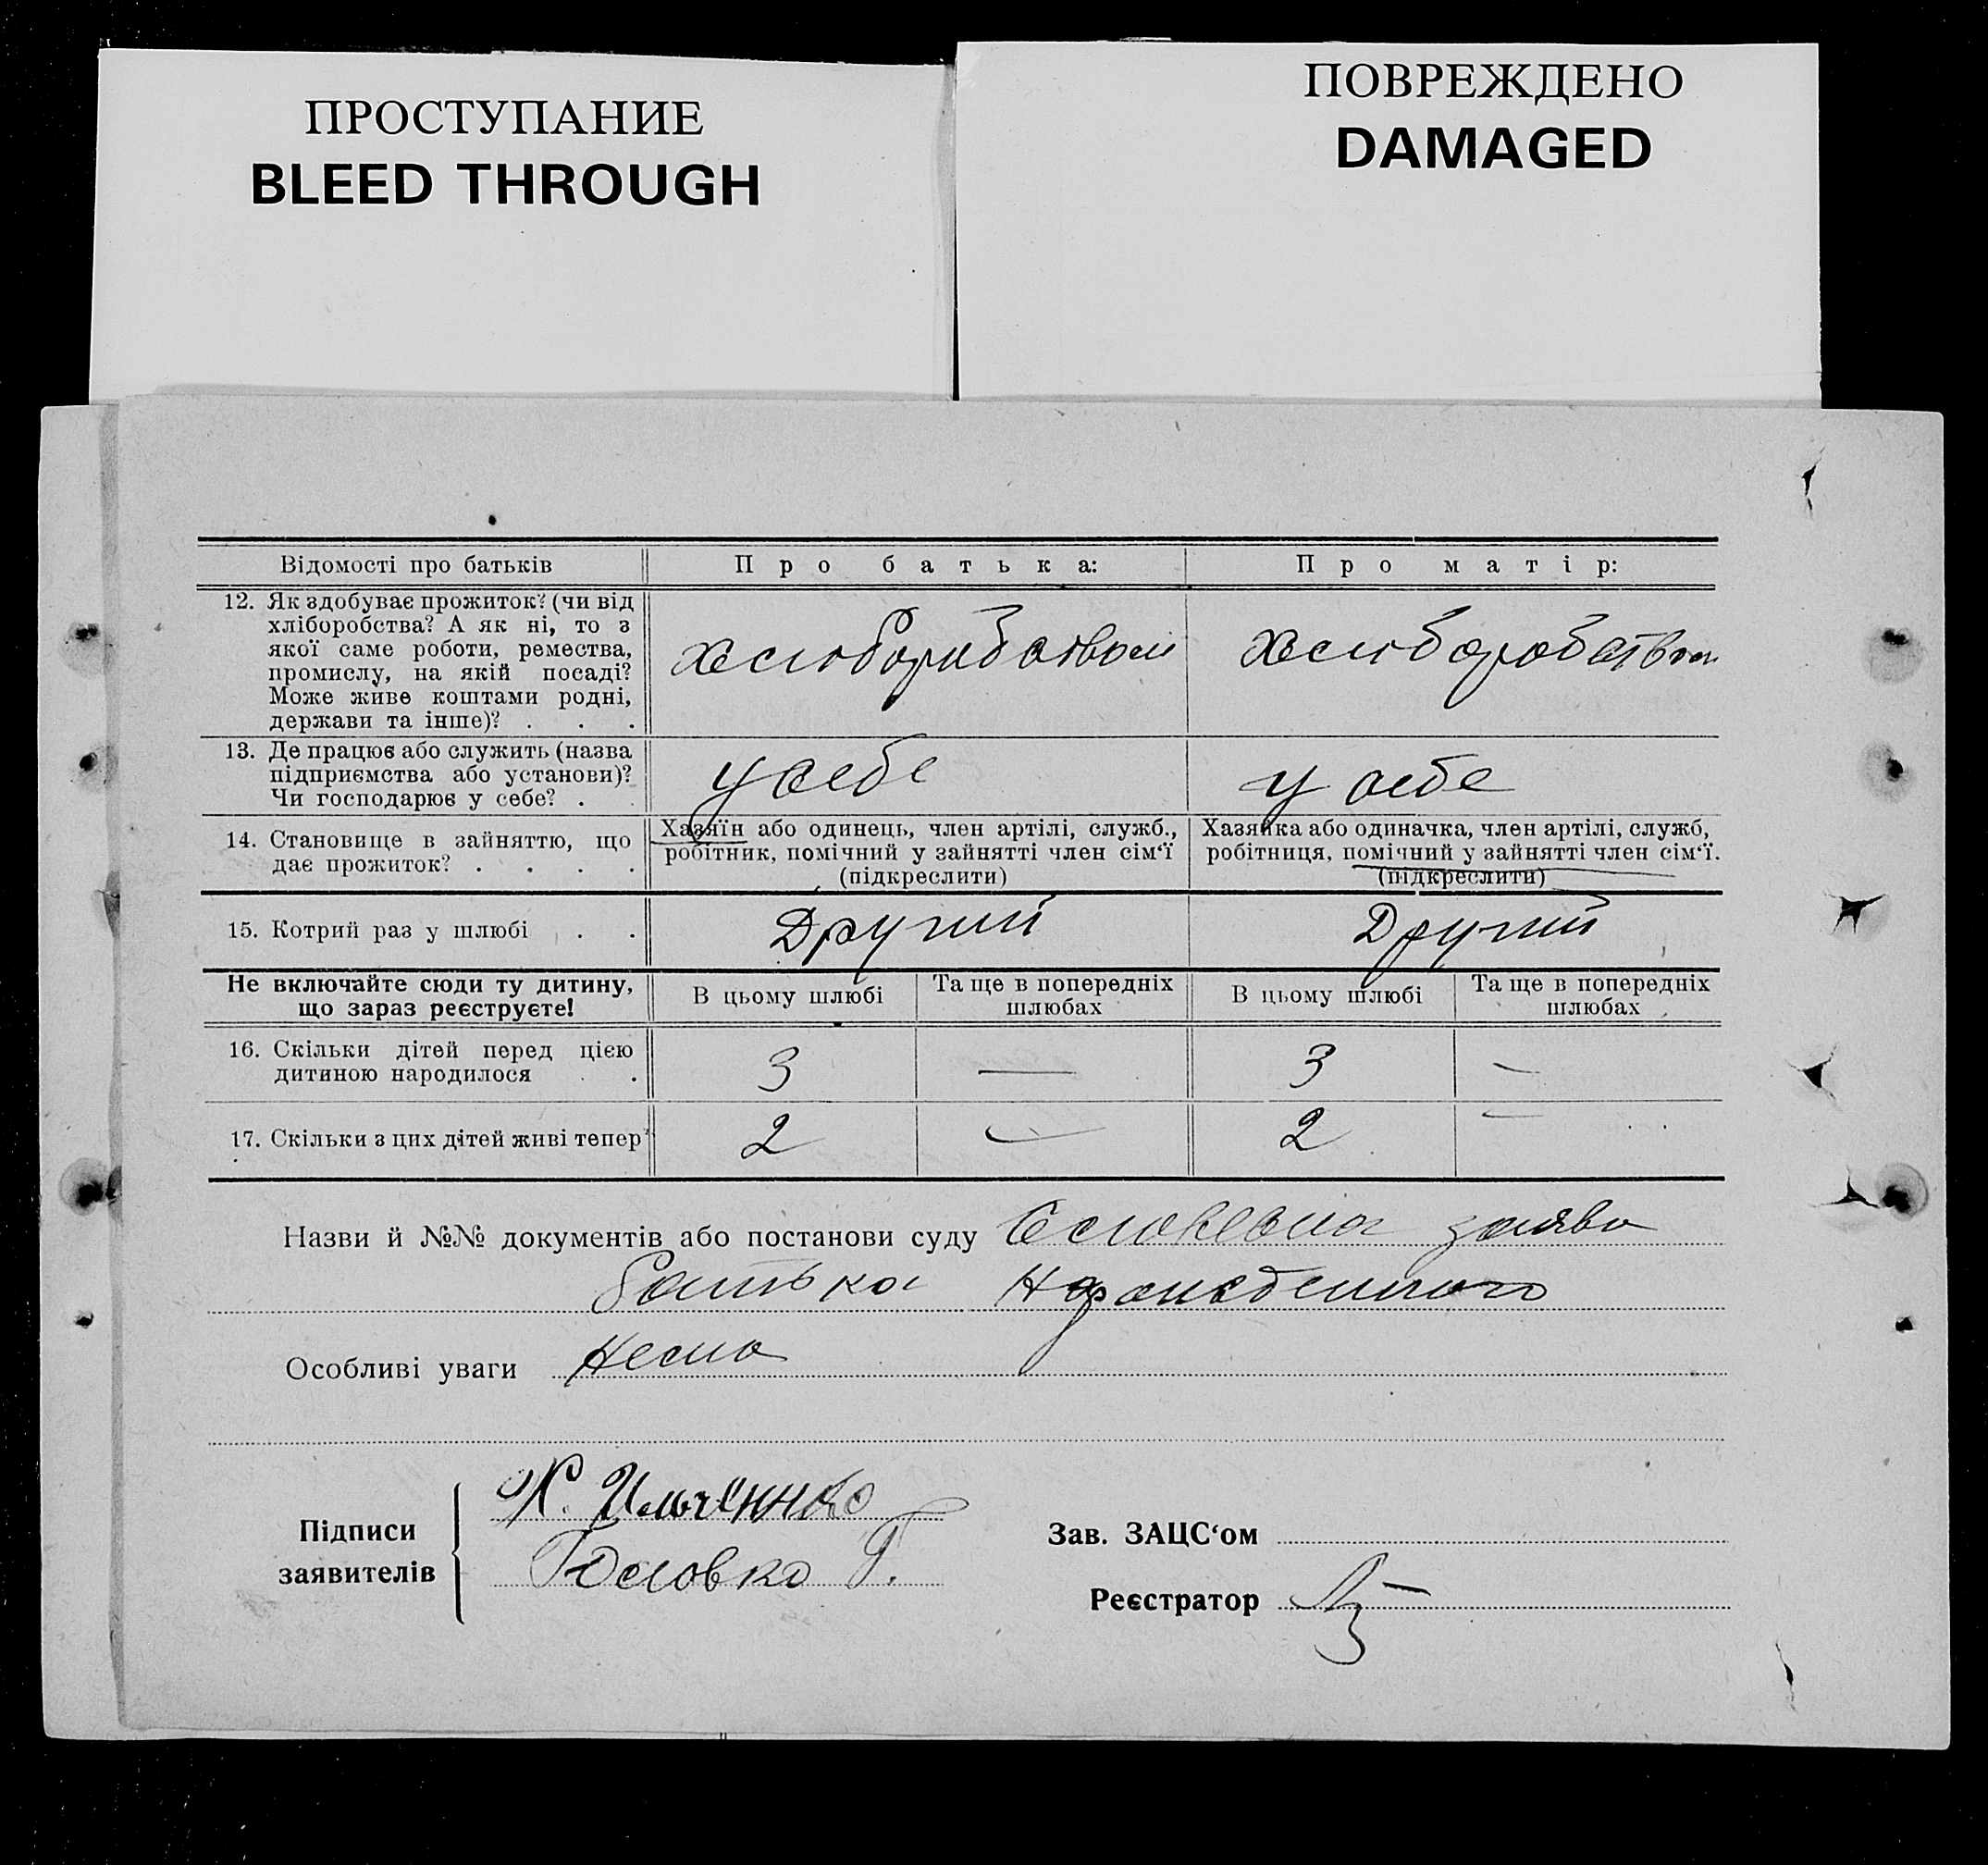 ПРОСТУПАНИЕ
BLEED THROUGH
ПОВРЕЖДЕНО
DAMAGED
Відомості про батьків
Про батька:
Про матір:
12. Як здобуває прожиток? (чи від
хліборобства? А як ні, то з
якої саме роботи, ремества,
промислу, на якій посаді?
Може живе коштами родні,
держави та інше)? . . .
хлиборобством
хлиборобством
13. Де працює або служить (назва
підприємства або установи)?
Чи господарює у себе? . .
у себе
у себе
14. Становище в зайняттю, що
дає прожиток? . . . .
Хазяїн або одинець, член артілі, служб.,
робітник, помічний у зайнятті член сім‘ї
(підкреслити)
Хазяйка або одиначка, член артілі, служб,
робітниця, помічний у зайнятті член сім‘ї.
(підкреслити)
15. Котрий раз у шлюбі . .
Другий
Другий
Не включайте сюди ту дитину,
що зараз реєструєте!
В цьому шлюбі
Та ще в попередніх
шлюбах
В цьому шлюбі
Та ще в попередніх
шлюбах
16. Скільки дітей перед цією
дитиною народилося . .
3
—
3
—
17. Скільки з цих дітей живі тепер?
2
—
2
—
Назви й №№ документів або постанови суду Словесна заява
батька
Особливі уваги Нема
Підписи
заявителів
Х. Ильченко
Головко Г.
Зав. ЗАЦС‘ом
Реєстратор